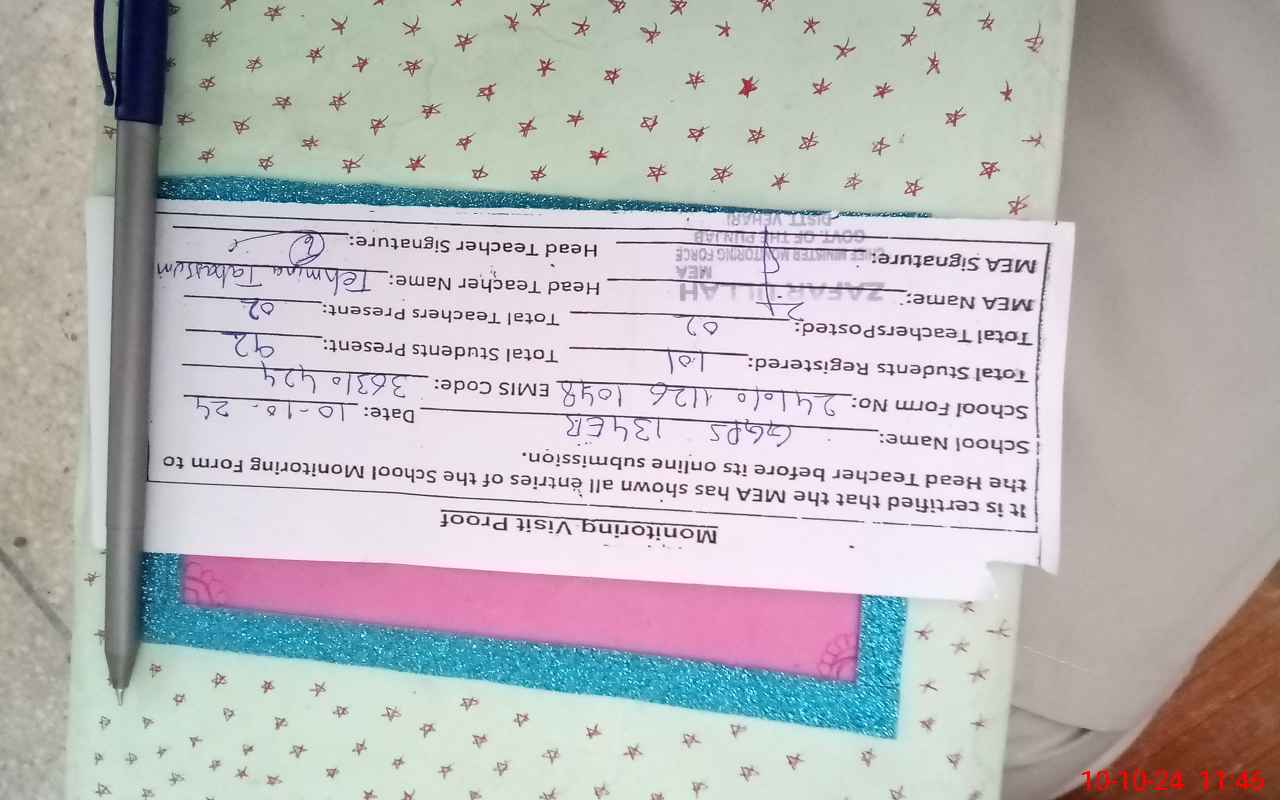 Monitoring Visit Proof
It is certified that the MEA has shown all entries of the School Monitoring Form to
the Head Teacher before its online submission.
School Name: GGPS 134 EB Date: 10-10-24
School Form No: 241010 1126 1048 EMIS Code: 36310424
Total Students Registered: 101 Total Students Present: 92
Total TeachersPosted: 02 Total Teachers Present: 02
MEA Name: ZAFAR ULLAH Head Teacher Name: Tehmina Tabassum
MEA
MEA Signature: Head Teacher Signature:
CHIEF MINISTER MONITORING FORCE
GOVT. OF THE PUNJAB
DISTT VEHARI
10-10-24 11:45